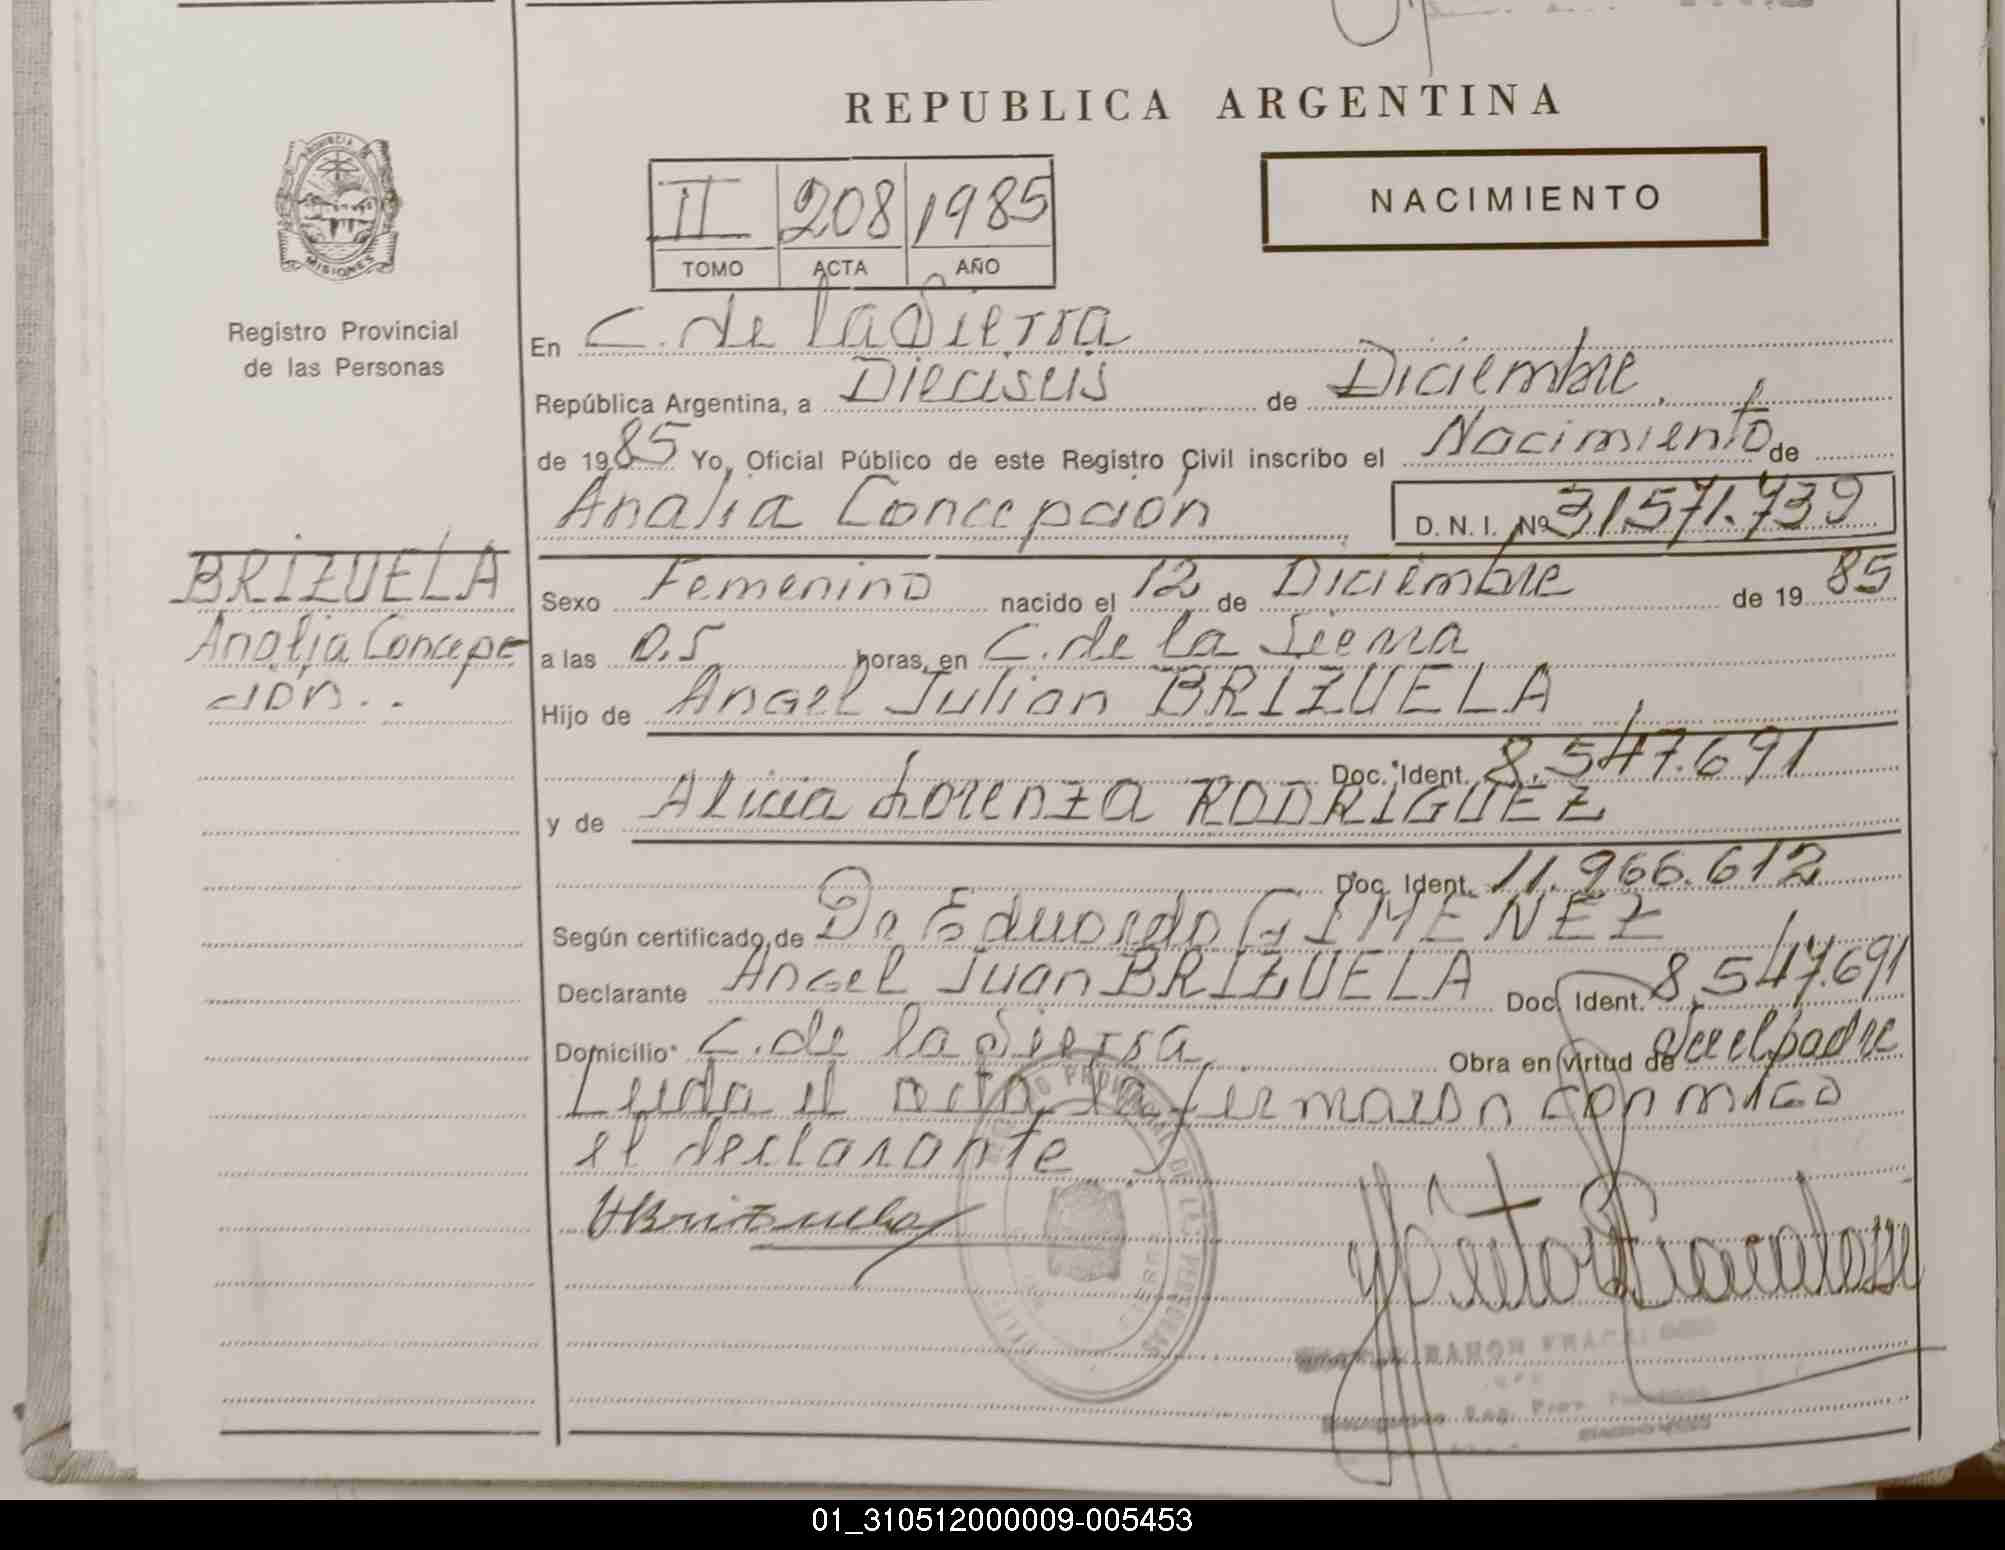 REPUBLICA ARGENTINA
PROVINCIA DE
MISIONES
Registro Provincial
de las Personas
II 208 1985
TOMO ACTA AÑO
NACIMIENTO
En C. de la Sierra
República Argentina, a Dieciseis de Diciembre
de 1985 Yo, Oficial Público de este Registro Civil inscribo el Nacimiento de
Analia Concepción D. N. I. Nº 31.571.739
BRIZUELA
Analia Concep
ción..
Sexo Femenino nacido el 12 de Diciembre de 1985
a las 0,5 horas, en C. de la Sierra
Hijo de Angel Julian BRIZUELA
Doc. Ident. 8.547.691
y de Alicia Lorenza RODRIGUEZ
Doc. Ident. 11.966.612
Según certificado de Dr Eduardo GIMENEZ
Declarante Angel Juan BRIZUELA Doc. Ident. 8.547.691
Domicilio C. de la Sierra Obra en virtud de Ser el padre
Leida el acta la firmaron conmigo
el declarante
Brizuela
RAMON FRACALOSSI
01_310512000009-005453